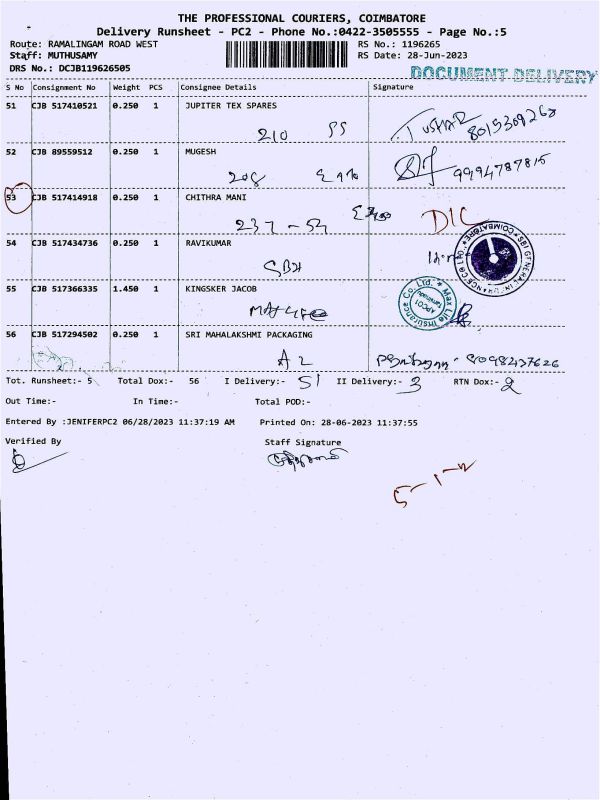 THE PROFESSIONAL COURIERS, COIMBATORE
Delivery Runsheet - PC2 - Phone No.:0422-3505555 - Page No.:5
Route: RAMALINGAM ROAD WEST RS No.: 1196265
Staff: MUTHUSAMY RS Date: 28-Jun-2023
DRS No.: DCJB119626505
DOCUMENT DELIVERY
S No Consignment No Weight PCS Consignee Details Signature
51 CJB 517410521 0.250 1 JUPITER TEX SPARES
210
52 CJB 89559512 0.250 1 MUGESH
208 9994787815
53 CJB 517414918 0.250 1 CHITHRA MANI
237 - 54 D/C
54 CJB 517434736 0.250 1 RAVIKUMAR
SBI GENERAL INSURANCE CO LTD * COIMBATORE *
55 CJB 517366335 1.450 1 KINGSKER JACOB
Max Life Insurance Co. Ltd. *
56 CJB 517294502 0.250 1 SRI MAHALAKSHMI PACKAGING
A2
Tot. Runsheet:- 5 Total Dox:- 56 I Delivery:- 51 II Delivery:- 3 RTN Dox:- 2
Out Time:- In Time:- Total POD:-
Entered By :JENIFERPC2 06/28/2023 11:37:19 AM Printed On: 28-06-2023 11:37:55
Verified By Staff Signature